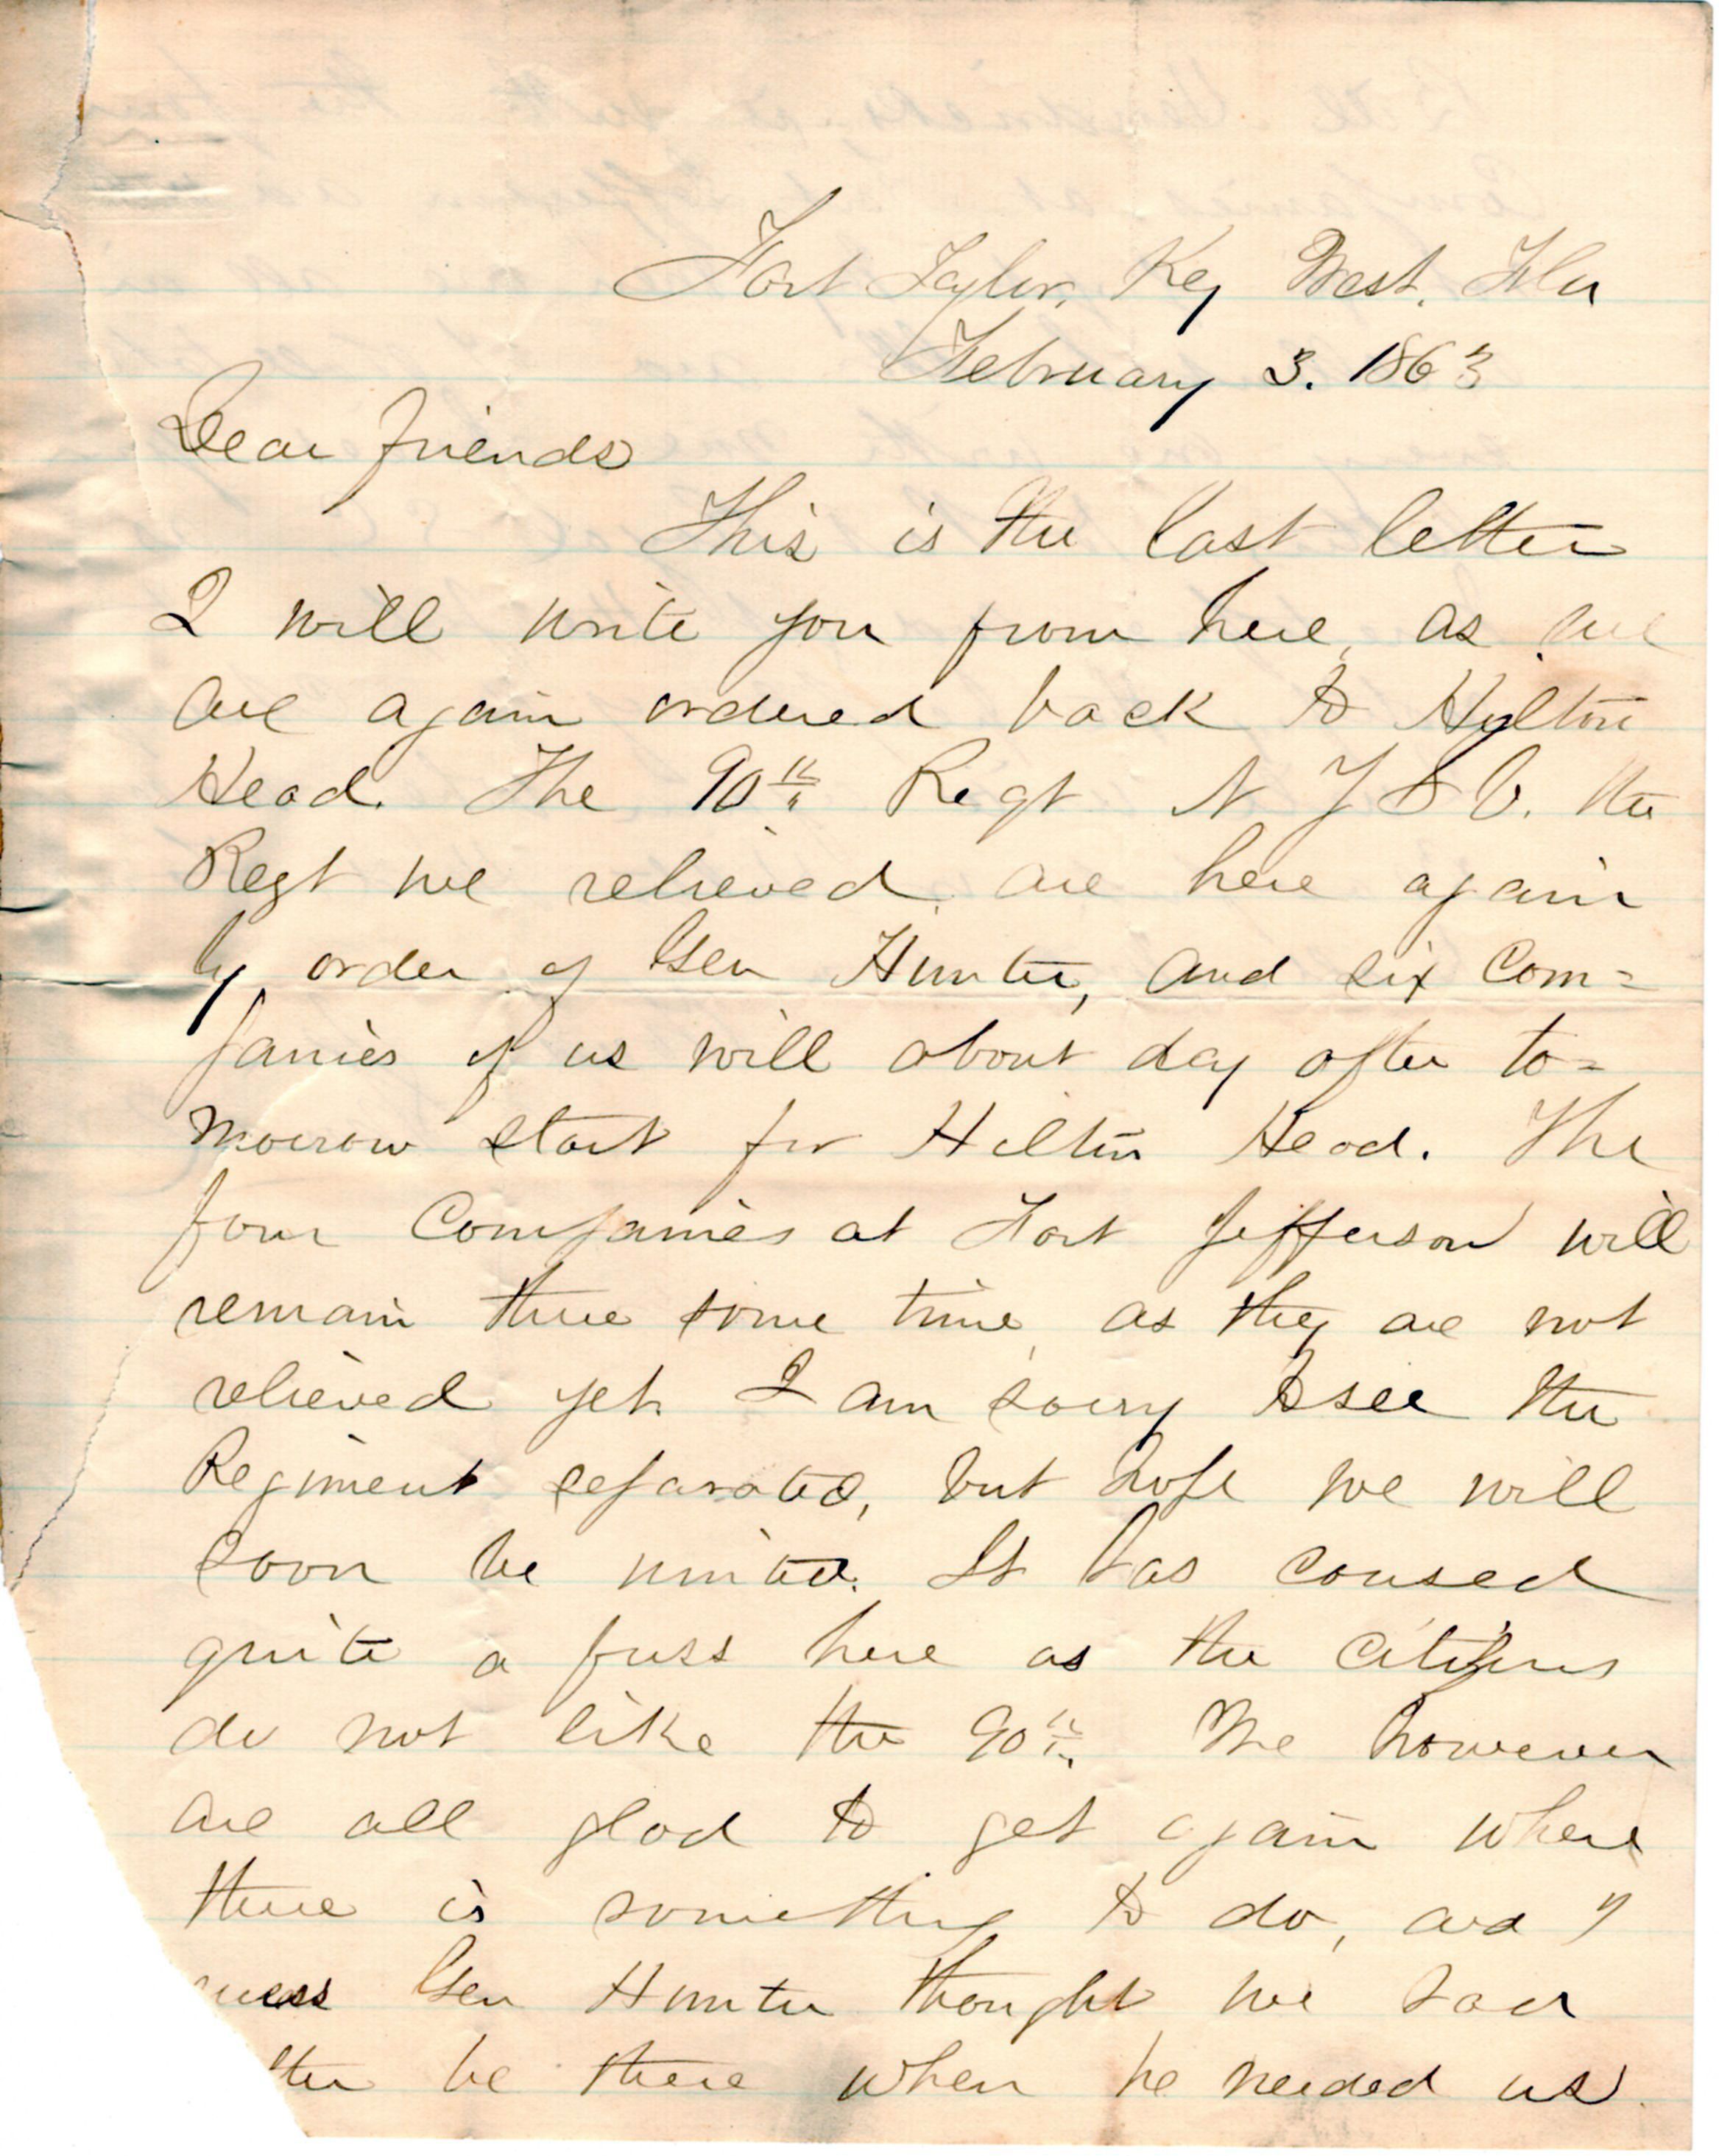 Fort Taylor, Key West, Fla
February 3. 1863
Dear friends
This is the last letter
I will write you from here, as we
are again ordered back to Hylton
Head. The 90th Regt N Y S V. the
Regt we relieved are here again
by order of Gen Hunter, and six Com=
panies of us will about day after to=
morrow start for Hilton Head. The
four Companies at Fort Jefferson will
remain there some time, as they are not
relieved yet. I am sorry to see the
Regiment separated, but hope we will
soon be united. It has caused
quite a fuss here as the citizens
do not like the 90th. We however
are all glad to get again where
there is something to do, and I
guess Gen Hunter thought we had
tter be there when he needed us.